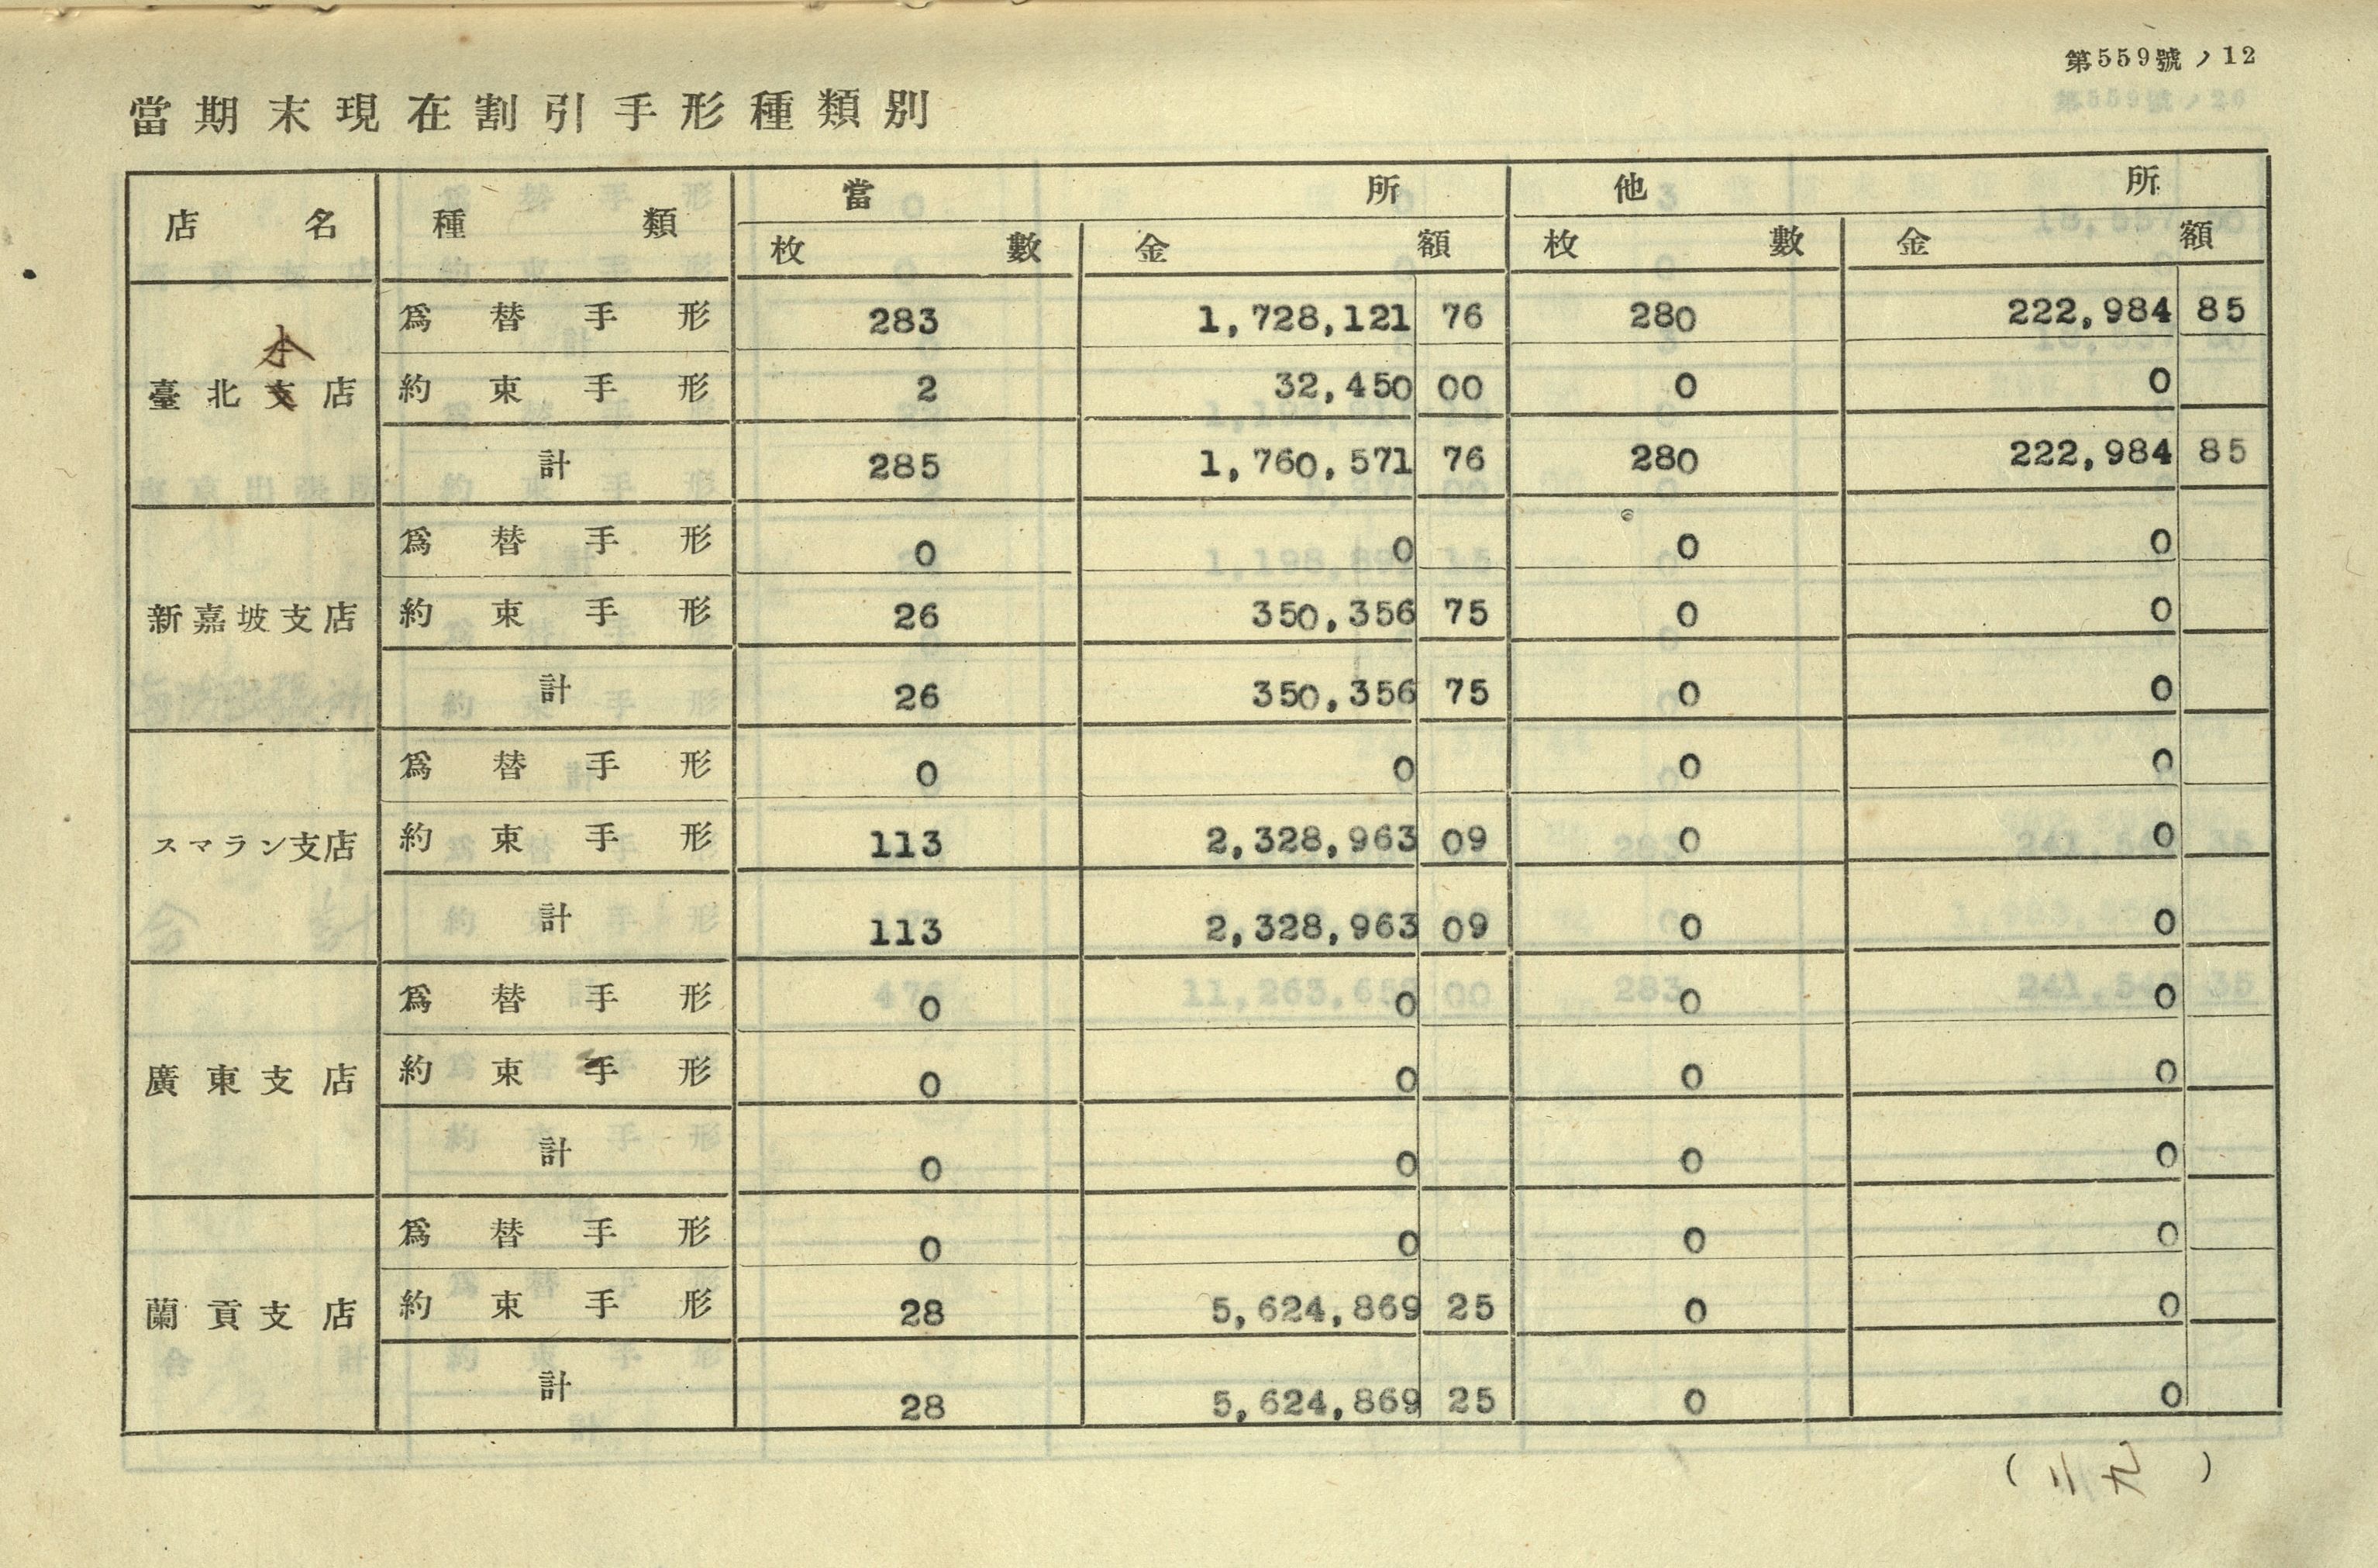 第559號ノ12
當期末現在割引手形種類別
店名 種類 當所 他所
枚數 金額 枚數 金額
爲替手形 283 1,728,121 76 280 222,984 85
本
臺北支店 約束手形 2 32,450 00 0 0
計 285 1,760,571 76 280 222,984 85
爲替手形 0 0 0 0
新嘉坡支店 約束手形 26 350,356 75 0 0
計 26 350,356 75 0 0
爲替手形 0 0 0 0
スマラン支店 約束手形 113 2,328,963 09 0 0
計 113 2,328,963 09 0 0
爲替手形 0 0 0 0
廣東支店 約束手形 0 0 0 0
計 0 0 0 0
爲替手形 0 0 0 0
蘭貢支店 約束手形 28 5,624,869 25 0 0
計 28 5,624,869 25 0 0